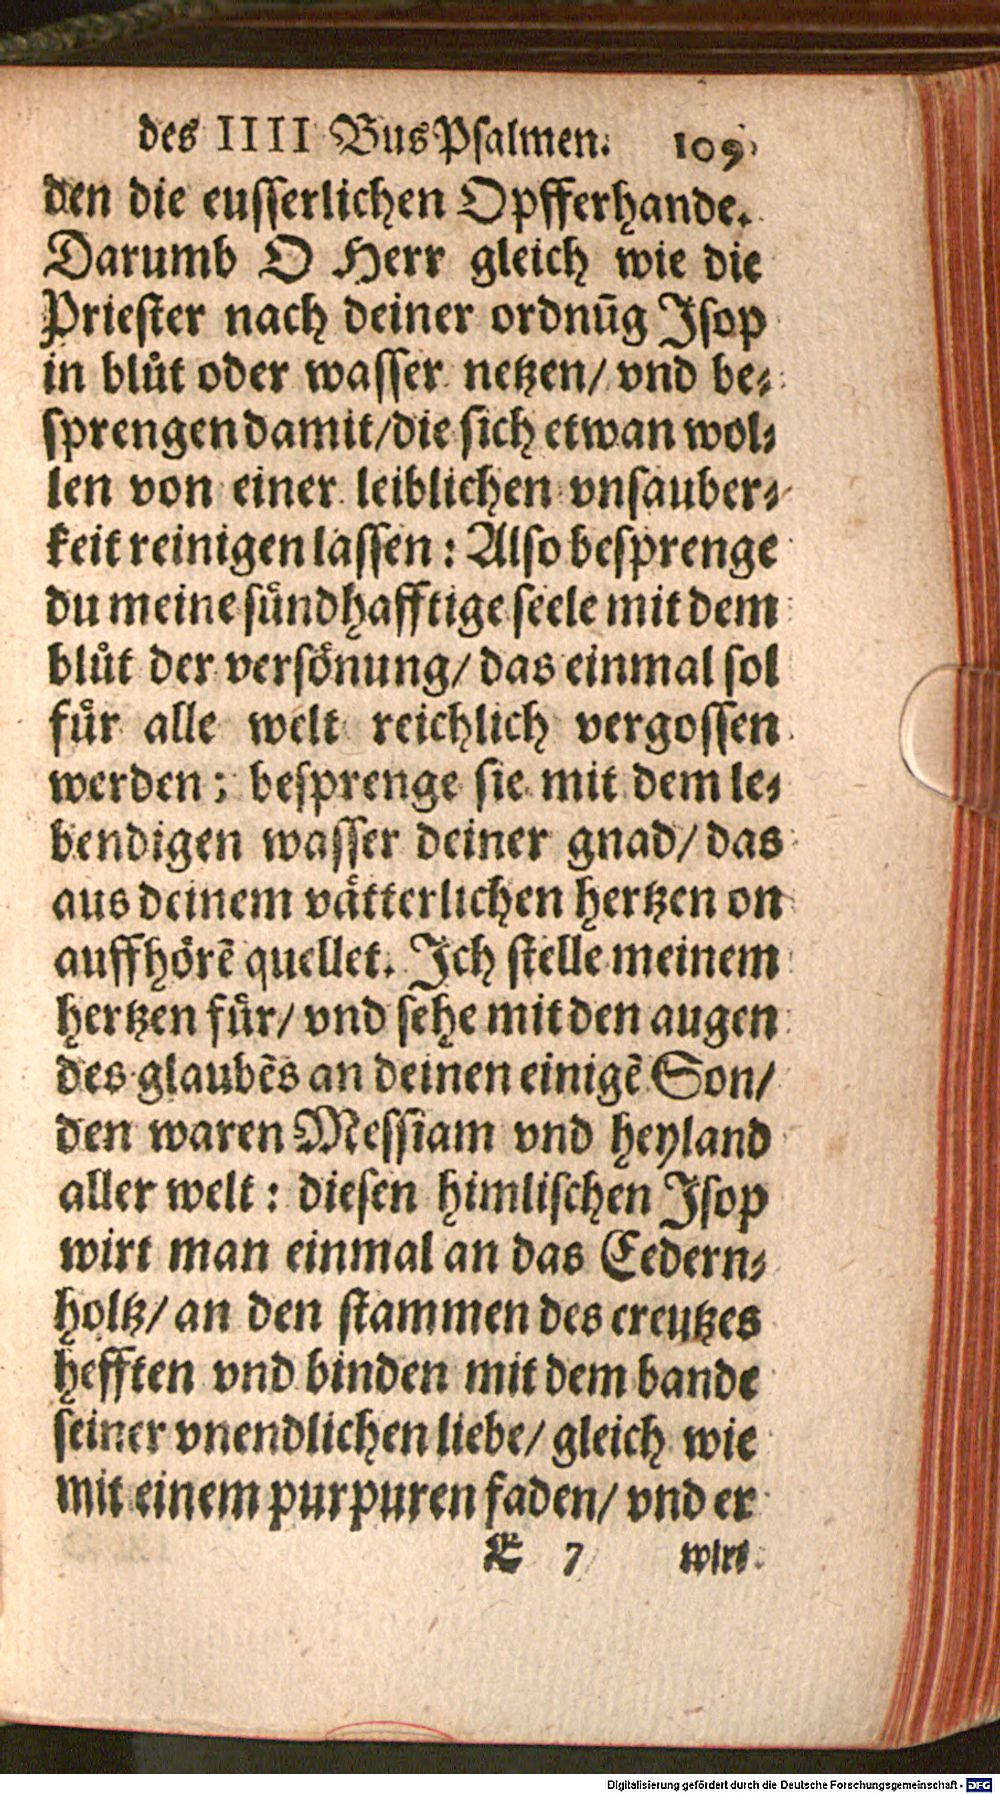 des IIII BusPsalmen. 109
den die eusserlichen Opfferhande.
Darumb O Herr gleich wie die
Priester nach deiner ordnūg Jsop
in blůt oder wasser netzen/ vnd be⸗
sprengen damit/die sich etwan wol⸗
len von einer leiblichen vnsauber⸗
keit reinigen lassen: Also besprenge
du meine sündhafftige seele mit dem
blůt der versönung/ das einmal sol
für alle welt reichlich vergossen
werden; besprenge sie mit dem le⸗
bendigen wasser deiner gnad/ das
aus deinem vätterlichen hertzen on
auffhörē quellet. Jch stelle meinem
hertzen für/ vnd sehe mit den augen
des glaubēs an deinen einigē Son/
den waren Messiam vnd heyland
aller welt: diesen himlischen Jsop
wirt man einmal an das Cedern⸗
holtz/ an den stammen des creutzes
hefften vnd binden mit dem bande
seiner vnendlichen liebe/ gleich wie
mit einem purpuren faden/ vnd er
E 7 wirt
Digitalisierung gefördert durch die Deutsche Forschungsgemeinschaft - DFG